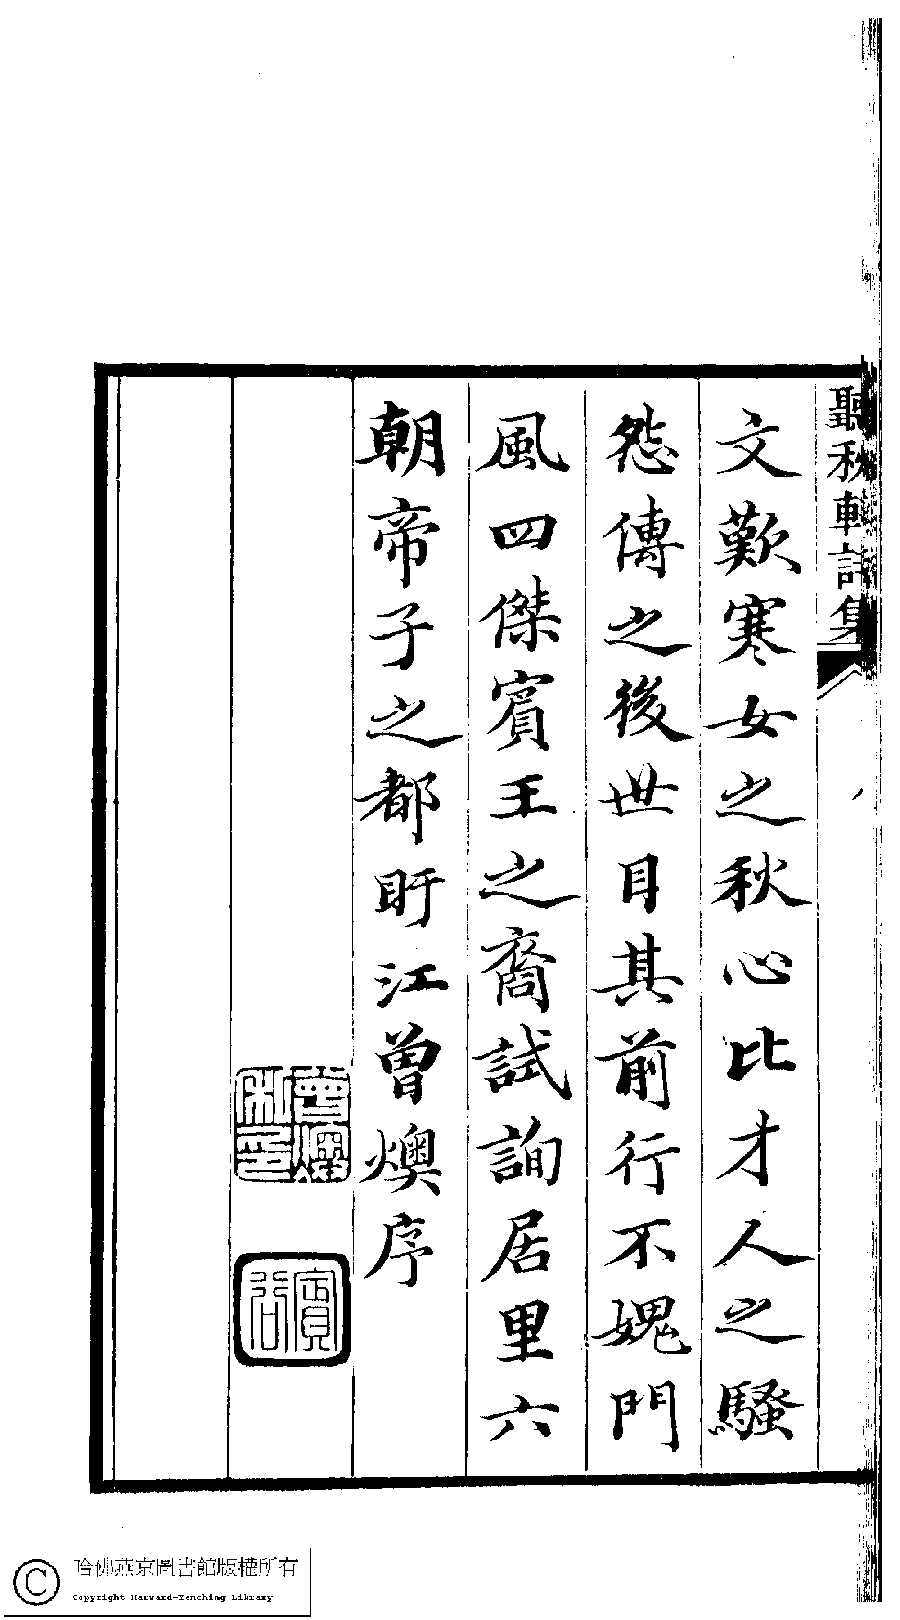 聽秋軒詩集
文歎寒女之秋心比才人之騷
怨傳之後世目其前行不媿門
風四傑賓王之裔試詢居里六
朝帝子之都盱江曾燠序
曾燠私印
賓谷
哈佛燕京圖書館版權所有
Copyright Harvard-Yenching Library